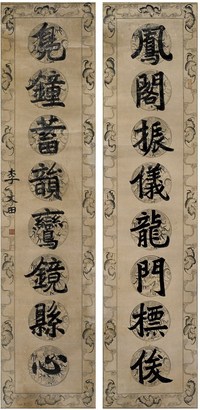 鳳閣振儀龍門標俊
鳧鐘蓄韻鸞鏡縣心
李文田